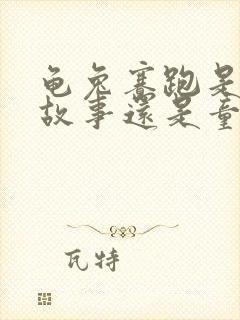 龟兔赛跑是
故事还是童
瓦特